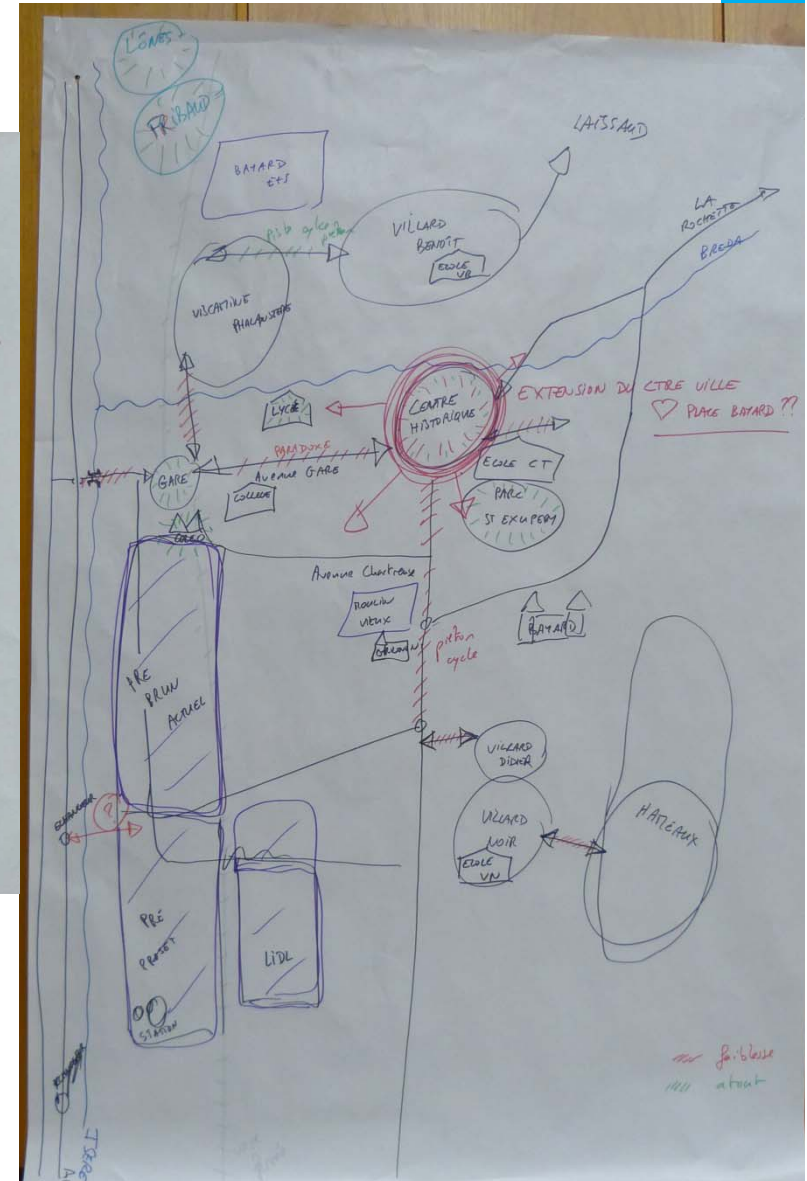 L'ÔNES
FRIBAUD
LAISSAUD
BAYARD
ETS
LA
ROCHETTE
BREDA
piste cycle
piéton
VILLARD
BENOÎT
ECOLE
VB
VISCAMINE
PHALANSTERE
LYCÉE
CENTRE
HISTORIQUE
EXTENSION DU CTRE VILLE
♡ PLACE BAYARD ??
PARADOXE
AVENUE GARE
GARE
COLLEGE
ECOLE CT
PARC
ST EXUPERY
Avenue Chartreuse
MOULIN
VIEUX
BAYARD
piéton
cycle
PRE
BRUN
ACTUEL
VILLARD
DIDIER
VILLARD
NOIR
ECOLE
VN
HAMEAUX
?
PRÉ
PROJET
LIDL
STATION
faiblesse
atout
ISERE
A